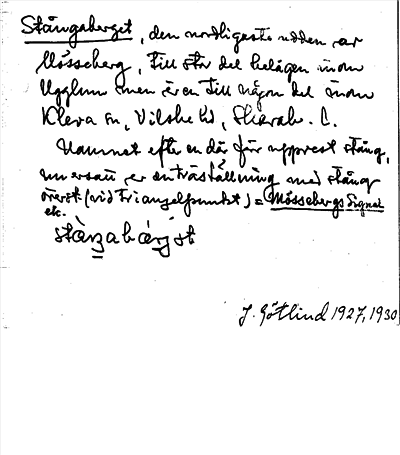 Stångaberget, den nordligaste udden av
Mösseberg, till stor del belägen inom
Ugglum men även till någon del inom
Kleva sn, Vilske hd, Skarab. l.
Namnet efter en där för upprest stång,
numera är en träställning med stång
överst (vid triangelpunkt) = Mössebergs Signal
etc.
J. Götlind 1927, 1930